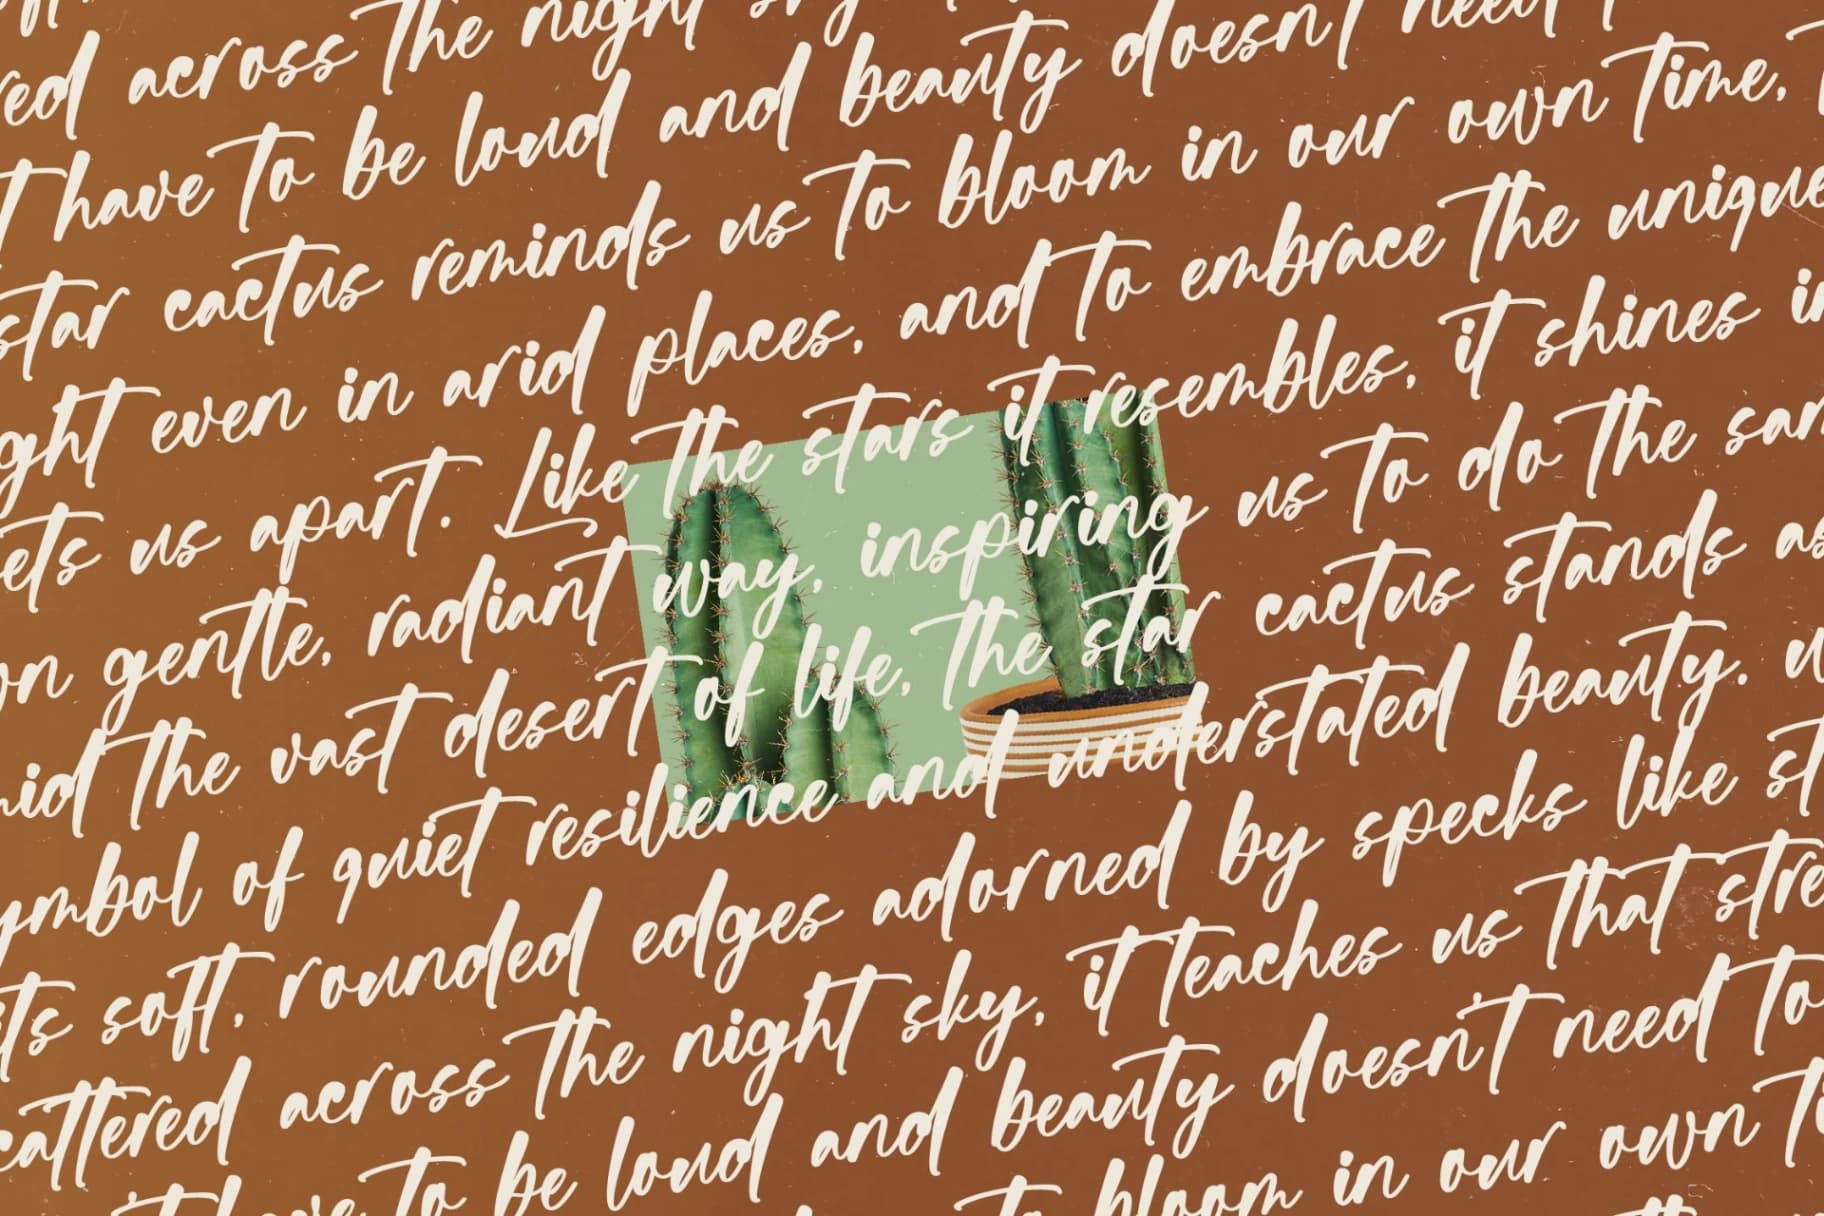 across the night
have to be loud and beauty doesn't need
star cactus reminds us to bloom in our own time,
even in arid places, and to embrace the unique
us apart. Like the stars it resembles, it shines in
gentle, radiant way, inspiring us to do the
the vast desert of life, the star cactus stands as
of quiet resilience and understated beauty.
soft, rounded edges adorned by specks like
across the night sky, it teaches us that
to be loud and beauty doesn't need to
to bloom in our own